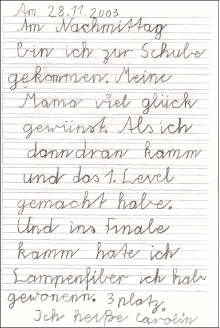 Am 28.11.2003
Am Nachmittag
bin ich zur Schule
gekommen. Meine
Mama viel glück
gewünst. Als ich
dann dran kamm
und das 1. Level
gemacht habe.
Und ins Finale
kamm hate ich
Lampenfiber ich hab
gewonenn. 3 platz.
Ich heiße Carolin